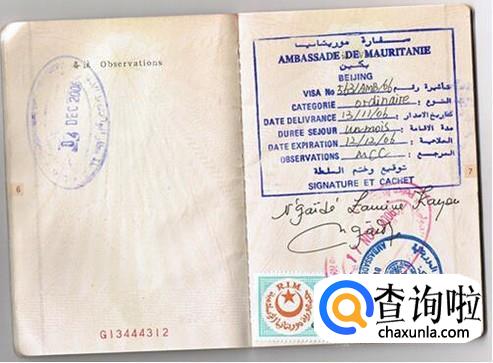 备注 Observations
04 DEC 2006
6
G13444312
سفارة موريتانيا
AMBASSADE DE MAURITANIE
بكين
BEIJING
VISA No 363/AMB/06 تأشيرة رقم
CATEGORIE ordinaire النوع
DATE DELIVRANCE 13/11/06 تاريخ الاصدار
DURÉE SEJOUR un mois مدة الاقامة
DATE EXPIRATION 12/12/06 الصلاحية
OBSERVATIONS MCC المرجع
توقيع وختم السلطة
SIGNATURE ET CACHET
7
N'gaïdé Lamine Kayou
R.I.M.
查询啦
chaxunla.com